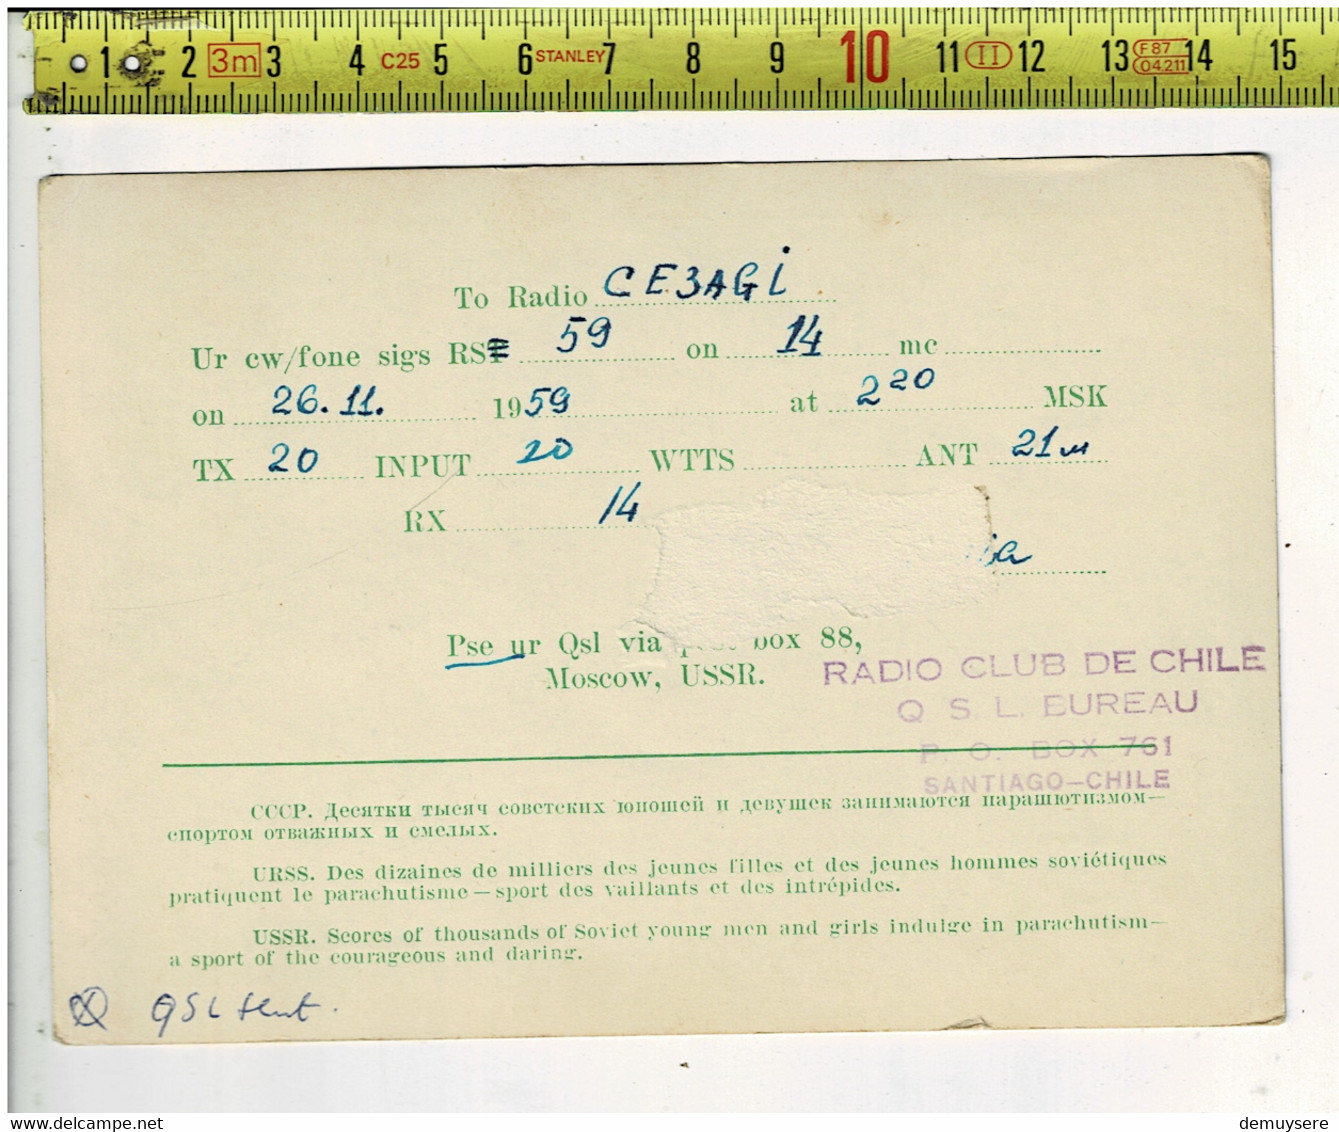 1 2 3m 3 4 C25 5 6 STANLEY 7 8 9 10 11 II 12 13 F87 04.211 14 15
To Radio CE3AGi
Ur cw/fone sigs RST 59 on 14 mc
on 26.11. 1959 at 2 20 MSK
TX 20 INPUT 20 WTTS ANT 21 м
RX 14
Pse ur Qsl via box 88,
Moscow, USSR.
RADIO CLUB DE CHILE
Q S. L. BUREAU
P. O. BOX 761
SANTIAGO—CHILE
СССР. Десятки тысяч советских юношей и девушек занимаются парашютизмом—
спортом отважных и смелых.
URSS. Des dizaines de milliers des jeunes filles et des jeunes hommes soviétiques
pratiquent le parachutisme—sport des vaillants et des intrépides.
USSR. Scores of thousands of Soviet young men and girls indulge in parachutism—
a sport of the courageous and daring.
QSL sent.
delcampe.net
demuysere